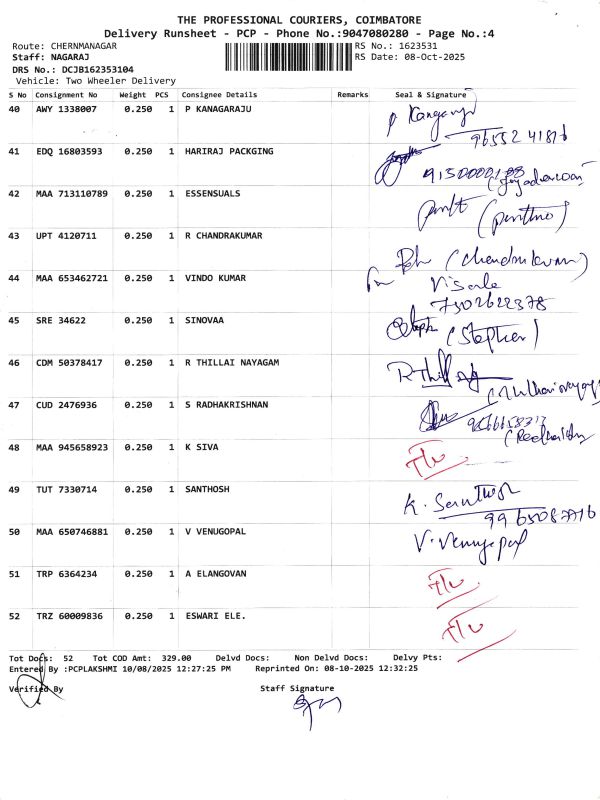 THE PROFESSIONAL COURIERS, COIMBATORE
Delivery Runsheet - PCP - Phone No.:9047080280 - Page No.:4
Route: CHERNMANAGAR RS No.: 1623531
Staff: NAGARAJ RS Date: 08-Oct-2025
DRS No.: DCJB162353104
Vehicle: Two Wheeler Delivery
S No Consignment No Weight PCS Consignee Details Remarks Seal & Signature
40 AWY 1338007 0.250 1 P KANAGARAJU
41 EDQ 16803593 0.250 1 HARIRAJ PACKGING
42 MAA 713110789 0.250 1 ESSENSUALS
43 UPT 4120711 0.250 1 R CHANDRAKUMAR
44 MAA 653462721 0.250 1 VINDO KUMAR
7502622378
45 SRE 34622 0.250 1 SINOVAA (Stephen)
46 CDM 50378417 0.250 1 R THILLAI NAYAGAM
47 CUD 2476936 0.250 1 S RADHAKRISHNAN
48 MAA 945658923 0.250 1 K SIVA
49 TUT 7330714 0.250 1 SANTHOSH K. Santhosh
9965087716
50 MAA 650746881 0.250 1 V VENUGOPAL V. Venugopal
51 TRP 6364234 0.250 1 A ELANGOVAN
52 TRZ 60009836 0.250 1 ESWARI ELE.
Tot Docs: 52 Tot COD Amt: 329.00 Delvd Docs: Non Delvd Docs: Delvy Pts:
Entered By :PCPLAKSHMI 10/08/2025 12:27:25 PM Reprinted On: 08-10-2025 12:32:25
Verified By Staff Signature